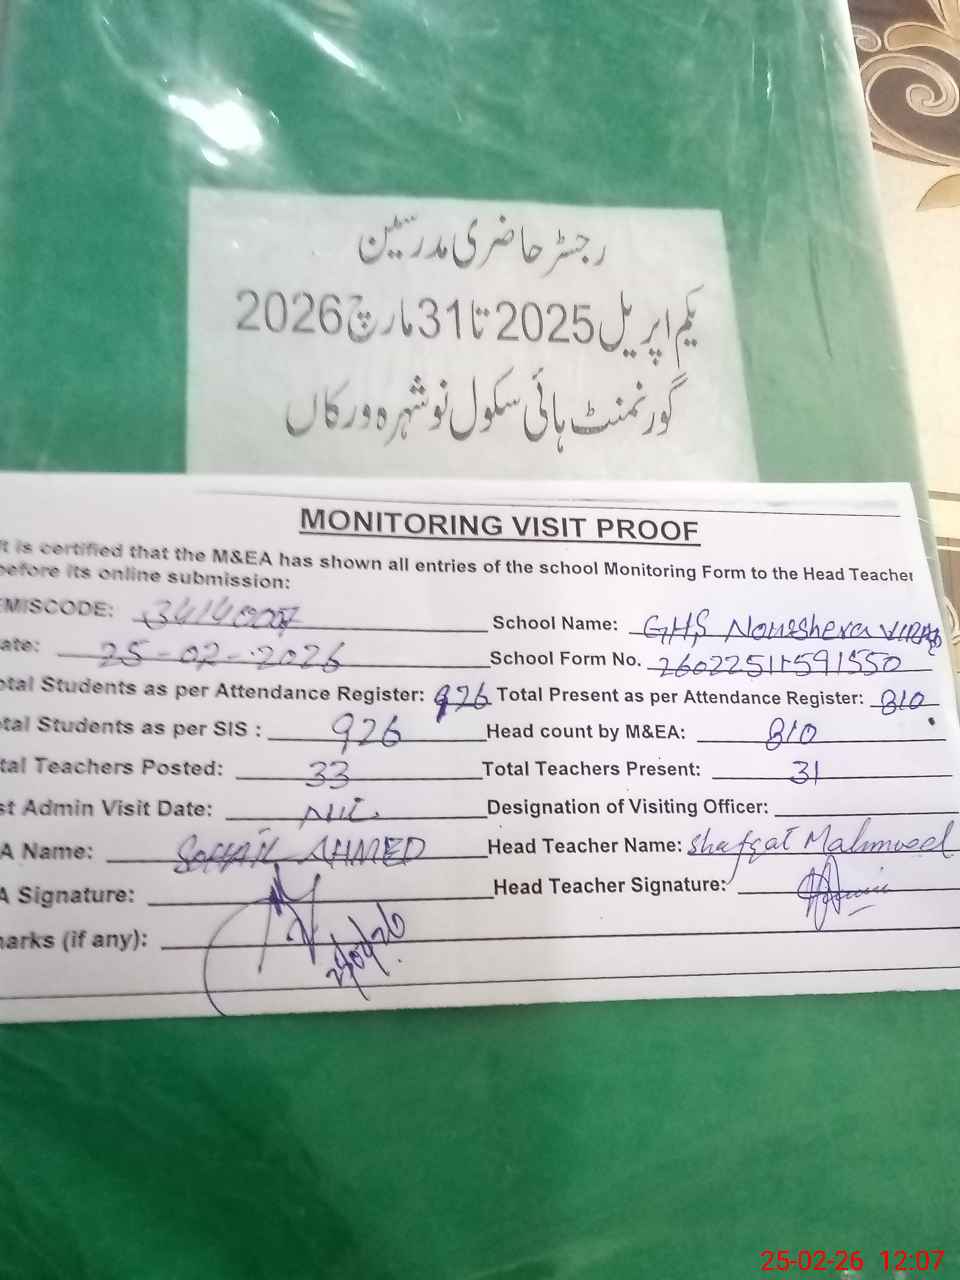 رجسٹر حاضری مدرسین
یکم اپریل 2025 تا 31 مارچ 2026
گورنمنٹ ہائی سکول نوشہرہ ورکاں
MONITORING VISIT PROOF
t is certified that the M&EA has shown all entries of the school Monitoring Form to the Head Teacher
before its online submission:
EMISCODE: School Name: GHS
ate: 25-02-2026 School Form No.
otal Students as per Attendance Register: 926 Total Present as per Attendance Register: 810
otal Students as per SIS : 926 Head count by M&EA: 810
tal Teachers Posted: 33 Total Teachers Present: 31
st Admin Visit Date: Nil. Designation of Visiting Officer:
A Name: SOHAIL AHMED Head Teacher Name: Shafqat Mahmood
A Signature: Head Teacher Signature:
narks (if any):
25-02-26 12:07